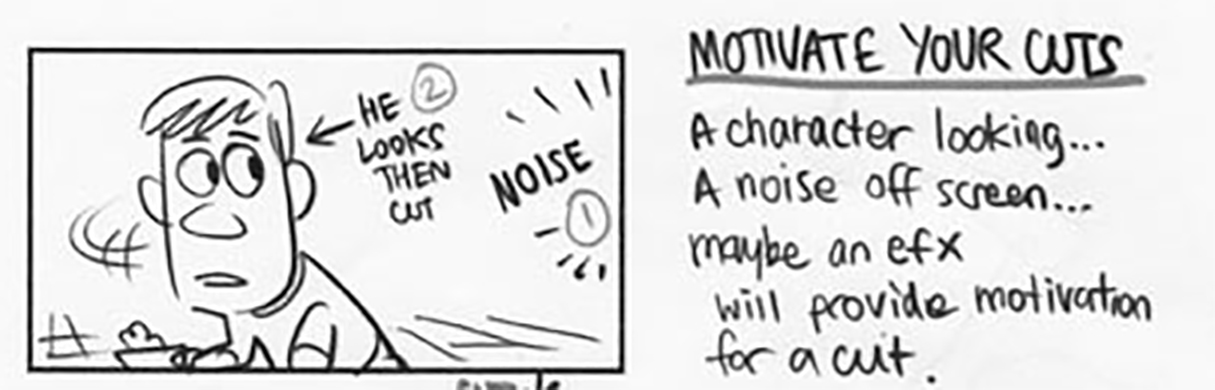 HE ②
LOOKS
THEN
CUT
NOISE
①
MOTIVATE YOUR CUTS
A character looking...
A noise off screen...
maybe an efx
will provide motivation
for a cut.